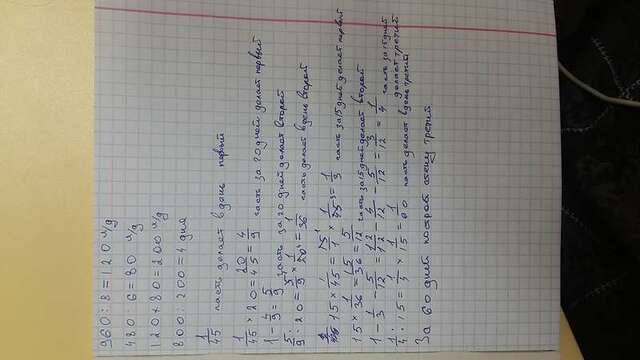 960 : 8 = 120 л/д
480 : 6 = 80 л/д
120 + 80 = 200 л/д
800 : 200 = 4 дня
1/45 часть делает в день первый
1/45 × 20 = 20/45 = 4/9 часть за 20 дней делает первый
1 - 4/9 = 5/9 часть за 20 дней делает второй
5/9 : 20 = 5/9 × 1/20 = 1/36 часть делает в день второй
15 × 1/45 = 15/1 × 1/45 = 1/3 часть за 15 дней делает первый
15 × 1/36 = 15/36 = 5/12 часть за 15 дней делает второй
1 - 1/3 - 5/12 = 12/12 - 4/12 - 5/12 = 3/12 = 1/4 часть за 15 дней
делает третий
1/4 : 15 = 1/4 × 1/15 = 1/60 часть делает в день третий
За 60 дней построит стену третий.